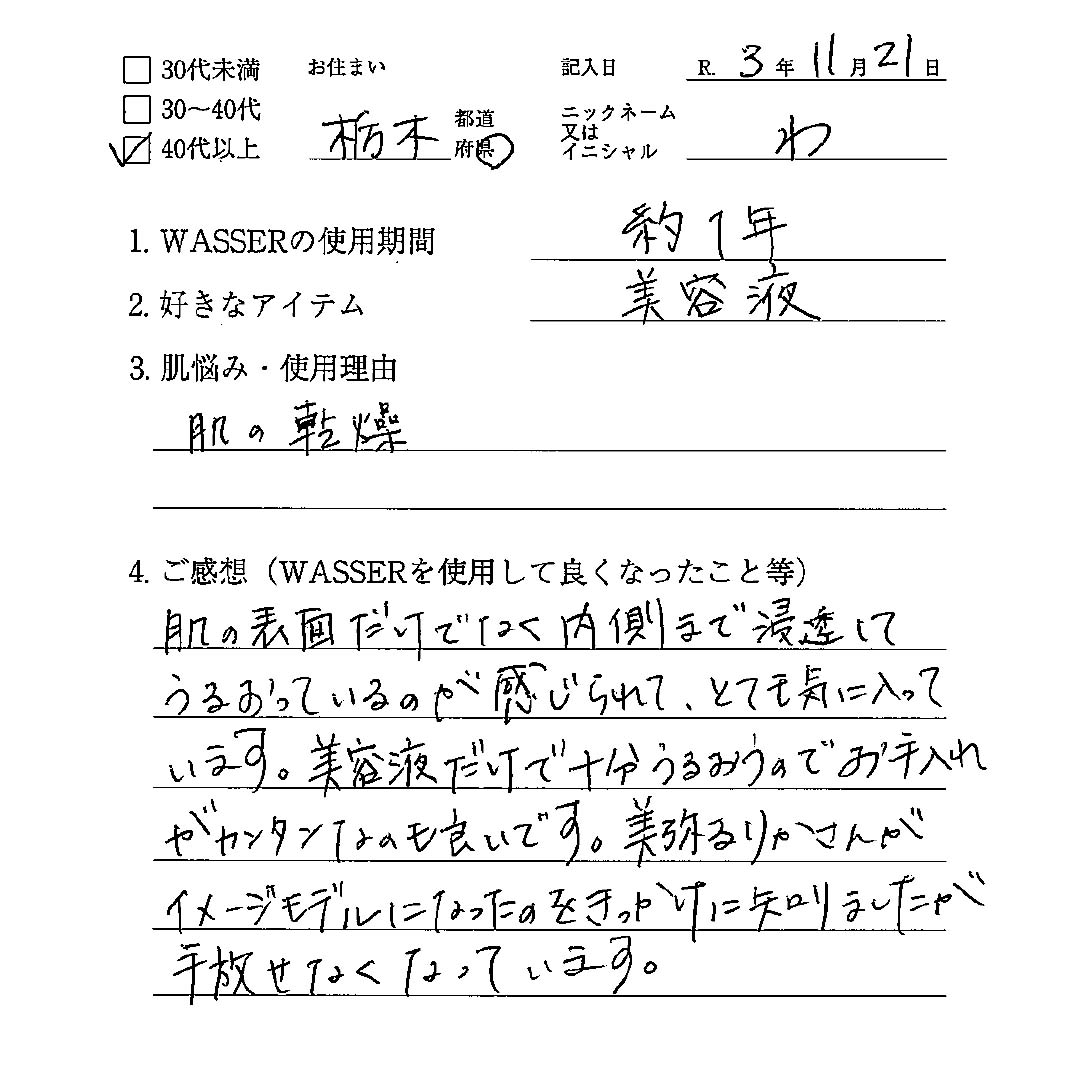 □ 30代未満 お住まい 記入日 R. 3年11月21日
□ 30〜40代 栃木 都道府県 ニックネーム又はイニシャル わ
☑ 40代以上
1. WASSERの使用期間 約1年
2. 好きなアイテム 美容液
3. 肌悩み・使用理由
肌の乾燥
4. ご感想（WASSERを使用して良くなったこと等）
肌の表面だけでなく内側まで浸透して
うるおっているのが感じられて、とても気に入って
います。美容液だけで十分うるおうのでお手入れ
がカンタンなのも良いです。美弥るりかさんが
イメージモデルになったのをきっかけに知りましたが
手放せなくなっています。